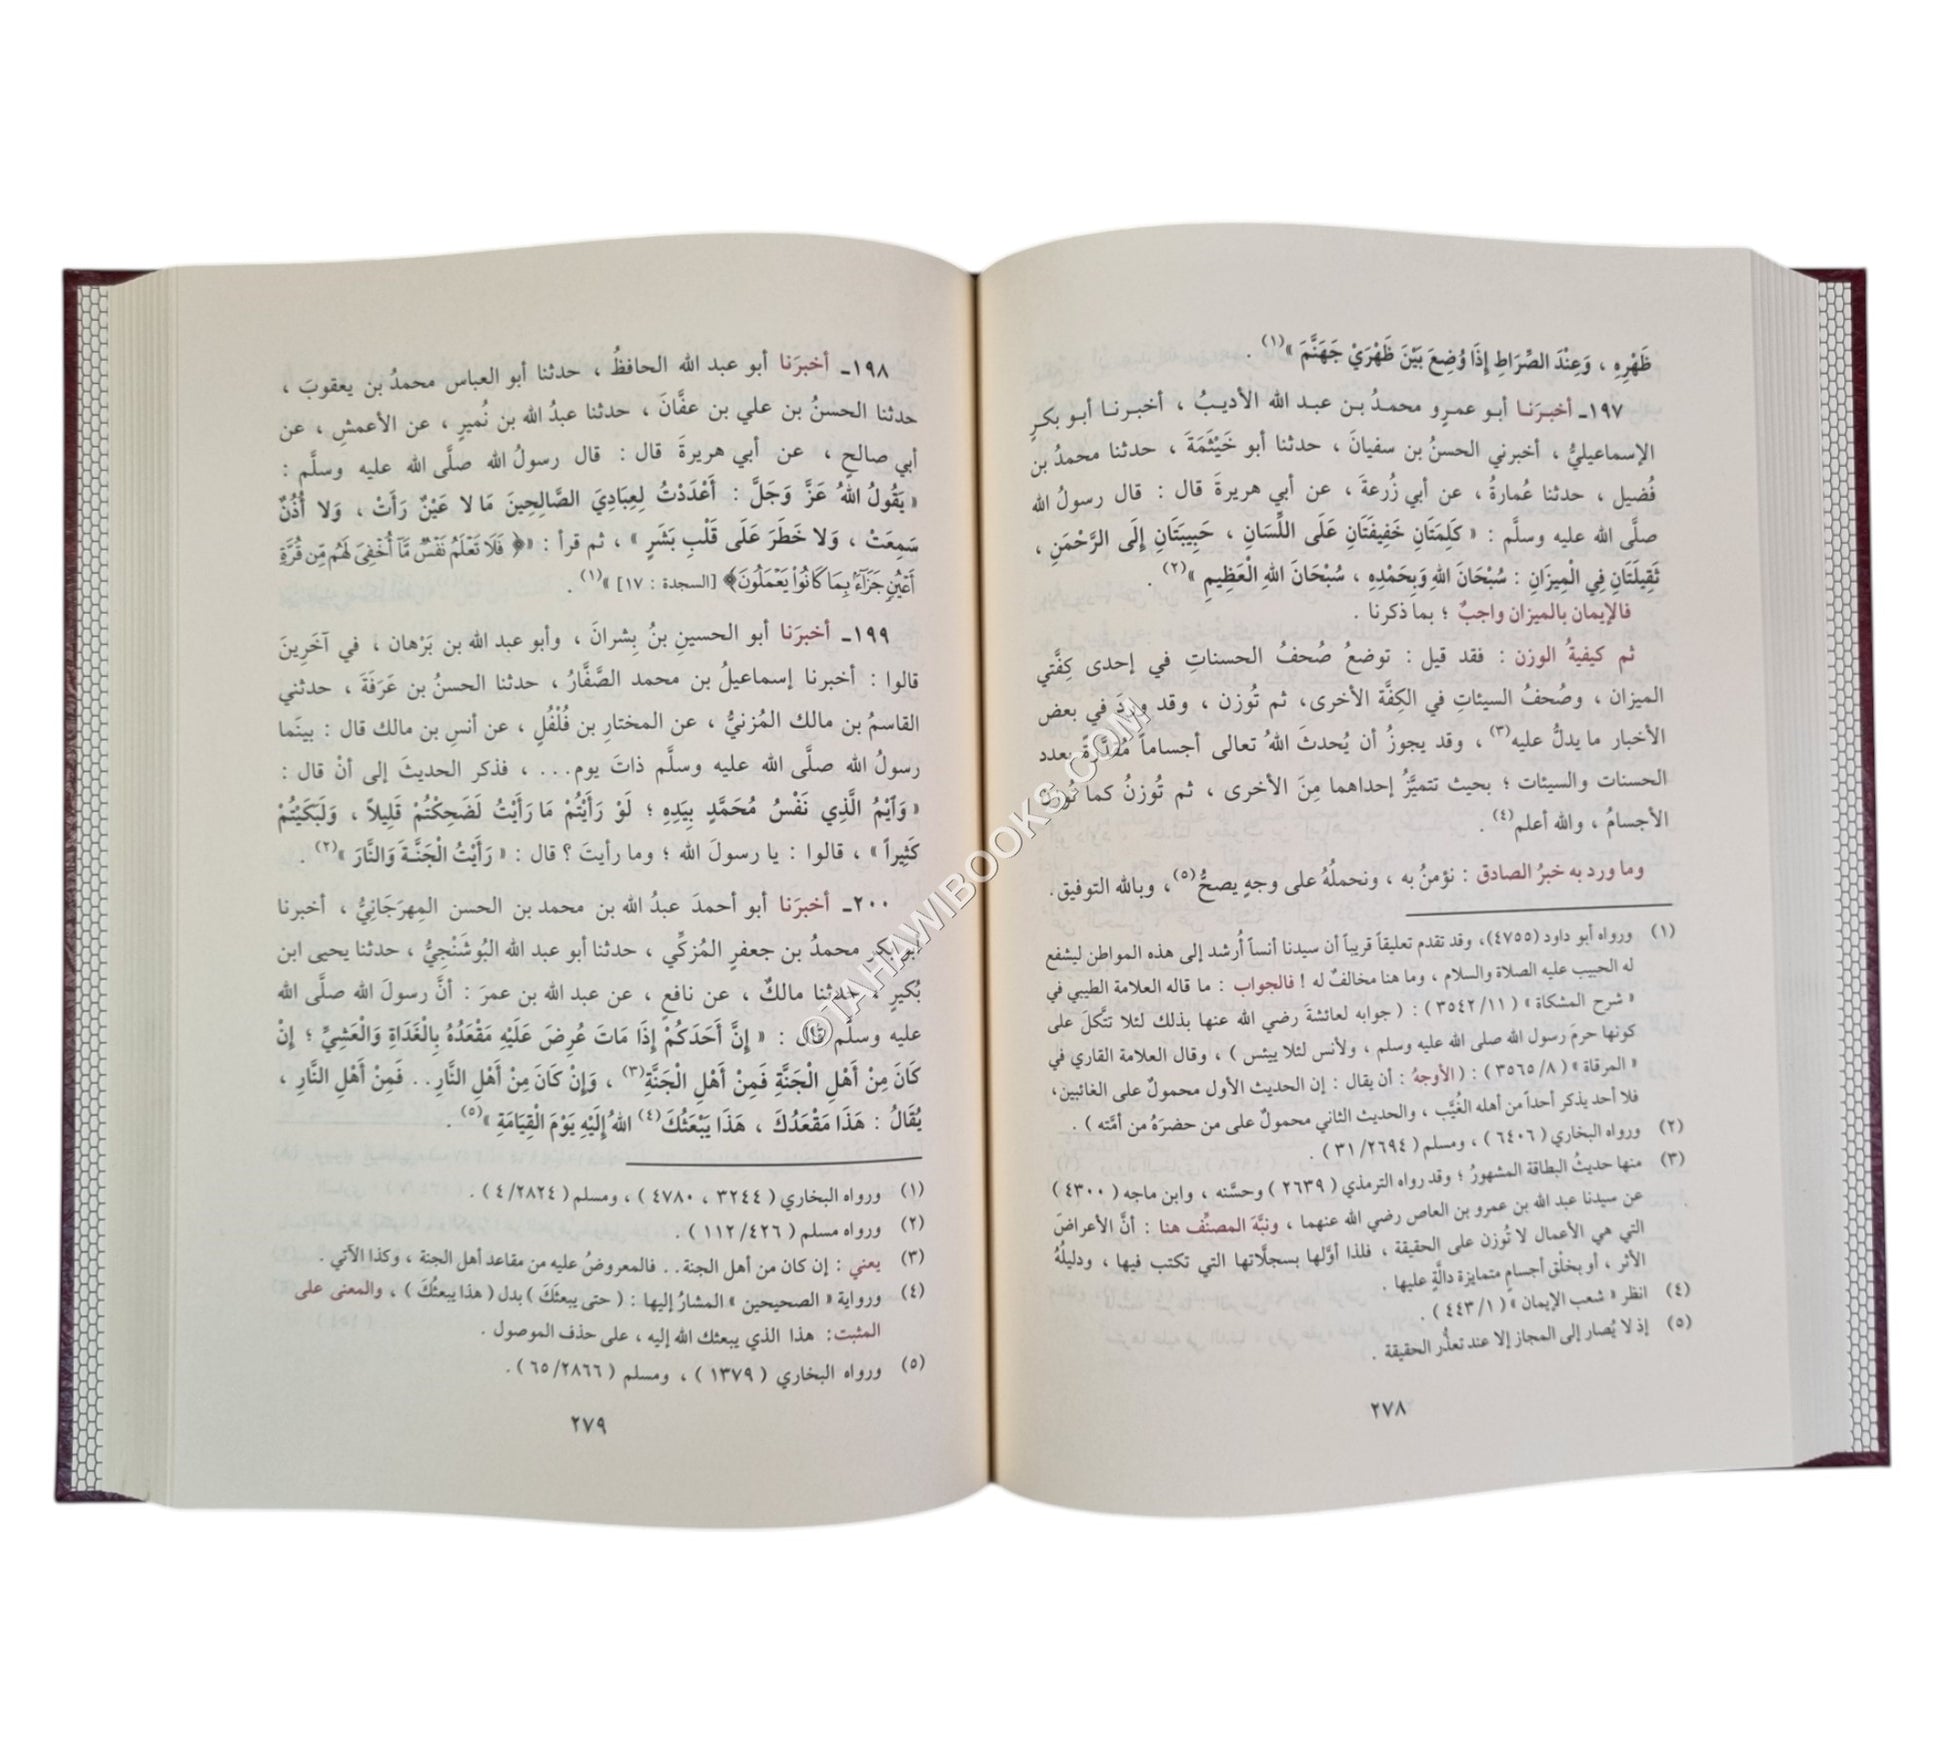 ظَهْرِهِ ، وَعِنْدَ الصِّرَاطِ إِذَا وُضِعَ بَيْنَ ظَهْرَيْ جَهَنَّمَ »(١) .
١٩٧ـ أخبرَنـا أبـو عمـرٍو محمـدُ بـن عبـد الله الأديـبُ ، أخبـرنـا أبـو بكـرٍ
الإسماعيليُّ ، أخبرني الحسنُ بن سفيانَ ، حدثنا أبو خَيْثَمَةَ ، حدثنا محمدُ بن
فُضيل ، حدثنا عُمارةُ ، عن أبي زُرعةَ ، عن أبي هريرةَ قال : قال رسولُ الله
صلَّى الله عليه وسلَّم : « كَلِمَتَانِ خَفِيفَتَانِ عَلَى اللِّسَانِ ، حَبِيبَتَانِ إِلَى الرَّحْمَنِ ،
ثَقِيلَتَانِ فِي الْمِيزَانِ : سُبْحَانَ اللهِ وَبِحَمْدِهِ ، سُبْحَانَ اللهِ الْعَظِيمِ »(٢) .
فالإيمان بالميزان واجبٌ ؛ بما ذكرنا .
ثم كيفيةُ الوزن : فقد قيل : توضعُ صُحفُ الحسناتِ في إحدى كِفَّتي
الميزان ، وصُحفُ السيئاتِ في الكِفَّة الأخرى، ثم تُوزن ، وقد وردَ في بعض
الأخبار ما يدلُّ عليه(٣) ، وقد يجوزُ أن يُحدثَ اللهُ تعالى أجساماً مُقدَّرةً بعدد
الحسنات والسيئات ؛ بحيث تتميَّزُ إحداهما مِنَ الأخرى ، ثم تُوزنُ كما تُوزنُ
الأجسامُ ، والله أعلم(٤) .
وما ورد به خبرُ الصادق : نؤمنُ به ، ونحملُهُ على وجهٍ يصحُّ(٥)، وبالله التوفيق.
(١) ورواه أبو داود (٤٧٥٥)، وقد تقدم تعليقاً قريباً أن سيدنا أنساً أُرشد إلى هذه المواطن ليشفع
له الحبيب عليه الصلاة والسلام ، وما هنا مخالفٌ له ! فالجواب : ما قاله العلامة الطيبي في
« شرح المشكاة » ( ٣٥٤٢/١١ ) : ( جوابه لعائشةَ رضي الله عنها بذلك لئلا تتَّكلَ على
كونها حرمَ رسول الله صلى الله عليه وسلم ، ولأنس لئلا ييئس ) ، وقال العلامة القاري في
« المرقاة » ( ٣٥٦٥/٨ ) : ( الأوجهُ : أن يقال : إن الحديث الأول محمولٌ على الغائبين،
فلا أحد يذكر أحداً من أهله الغُيَّب ، والحديث الثاني محمولٌ على من حضرَهُ من أمَّته ) .
(٢) ورواه البخاري ( ٦٤٠٦ ) ، ومسلم ( ٣١/٢٦٩٤ ) .
(٣) منها حديثُ البطاقة المشهورُ ؛ وقد رواه الترمذي ( ٢٦٣٩ ) وحسَّنه ، وابن ماجه ( ٤٣٠٠ )
عن سيدنا عبد الله بن عمرو بن العاص رضي الله عنهما ، ونبَّهَ المصنِّف هنا : أنَّ الأعراضَ
التي هي الأعمال لا تُوزن على الحقيقة ، فلذا أوَّلها بسجلَّاتها التي تكتب فيها ، ودليلُهُ
الأثر ، أو بخلْق أجسامٍ متمايزة دالَّةٍ عليها .
(٤) انظر « شعب الإيمان » ( ٤٤٣/١ ) .
(٥) إذ لا يُصار إلى المجاز إلا عند تعذُّر الحقيقة .
٢٧٨
١٩٨ـ أخبرَنا أبو عبد الله الحافظُ ، حدثنا أبو العباس محمدُ بن يعقوبَ ،
حدثنا الحسنُ بن علي بن عفَّانَ ، حدثنا عبدُ الله بن نُميرٍ ، عن الأعمشِ ، عن
أبي صالحٍ ، عن أبي هريرةَ قال : قال رسولُ الله صلَّى الله عليه وسلَّم :
« يَقُولُ اللهُ عَزَّ وَجَلَّ : أَعْدَدْتُ لِعِبَادِيَ الصَّالِحِينَ مَا لا عَيْنٌ رَأَتْ ، وَلا أُذُنٌ
سَمِعَتْ ، وَلا خَطَرَ عَلَى قَلْبِ بَشَرٍ » ، ثم قرأ : «﴿ فَلَا تَعْلَمُ نَفْسٌ مَّآ أُخْفِىَ لَهُم مِّن قُرَّةِ
أَعْيُنٍ جَزَآءًۢ بِمَا كَانُوا۟ يَعْمَلُونَ﴾ [السجدة : ١٧] »(١) .
١٩٩ـ أخبرَنا أبو الحسينِ بنُ بِشرانَ ، وأبو عبد الله بن بَرْهان ، في آخَرِينَ
قالوا : أخبرنا إسماعيلُ بن محمد الصَّفَّارُ ، حدثنا الحسنُ بن عَرَفَةَ ، حدثني
القاسمُ بن مالك المُزنيُّ ، عن المختارِ بن فُلْفُلٍ ، عن أنسِ بن مالك قال : بينَما
رسولُ الله صلَّى الله عليه وسلَّم ذاتَ يوم... ، فذكر الحديثَ إلى أنْ قال :
« وَايْمُ الَّذِي نَفْسُ مُحَمَّدٍ بِيَدِهِ ؛ لَوْ رَأَيْتُمْ مَا رَأَيْتُ لَضَحِكْتُمْ قَلِيلاً ، وَلَبَكَيْتُمْ
كَثِيراً » ، قالوا : يا رسولَ الله ؛ وما رأيتَ ؟ قال : « رَأَيْتُ الْجَنَّةَ وَالنَّارَ »(٢) .
٢٠٠ـ أخبرَنا أبو أحمدَ عبدُ الله بن محمد بن الحسن المِهرَجَانِيُّ ، أخبرنا
أبو بكر محمدُ بن جعفرٍ المُزكِّي ، حدثنا أبو عبد الله البُوشَنْجِيُّ ، حدثنا يحيى ابن
بُكيرٍ ، حدثنا مالكٌ ، عن نافعٍ ، عن عبد الله بن عمرَ : أنَّ رسولَ الله صلَّى الله
عليه وسلَّم قال : « إِنَّ أَحَدَكُمْ إِذَا مَاتَ عُرِضَ عَلَيْهِ مَقْعَدُهُ بِالْغَدَاةِ وَالْعَشِيِّ ؛ إِنْ
كَانَ مِنْ أَهْلِ الْجَنَّةِ فَمِنْ أَهْلِ الْجَنَّةِ(٣) ، وَإِنْ كَانَ مِنْ أَهْلِ النَّارِ .. فَمِنْ أَهْلِ النَّارِ ،
يُقَالُ : هَذَا مَقْعَدُكَ ، هَذَا يَبْعَثُكَ(٤) اللهُ إِلَيْهِ يَوْمَ الْقِيَامَةِ »(٥) .
(١) ورواه البخاري ( ٣٢٤٤ ، ٤٧٨٠ ) ، ومسلم ( ٤/٢٨٢٤ ) .
(٢) ورواه مسلم ( ١١٢/٤٢٦ ) .
(٣) يعني : إن كان من أهل الجنة .. فالمعروضُ عليه من مقاعد أهل الجنة ، وكذا الآتي .
(٤) ورواية « الصحيحين » المشارُ إليها : ( حتى يبعثَكَ ) بدل ( هذا يبعثُكَ ) ، والمعنى على
المثبت: هذا الذي يبعثك الله إليه ، على حذف الموصول .
(٥) ورواه البخاري ( ١٣٧٩ ) ، ومسلم ( ٦٥/٢٨٦٦ ) .
٢٧٩
©TAHAWIBOOKS.COM